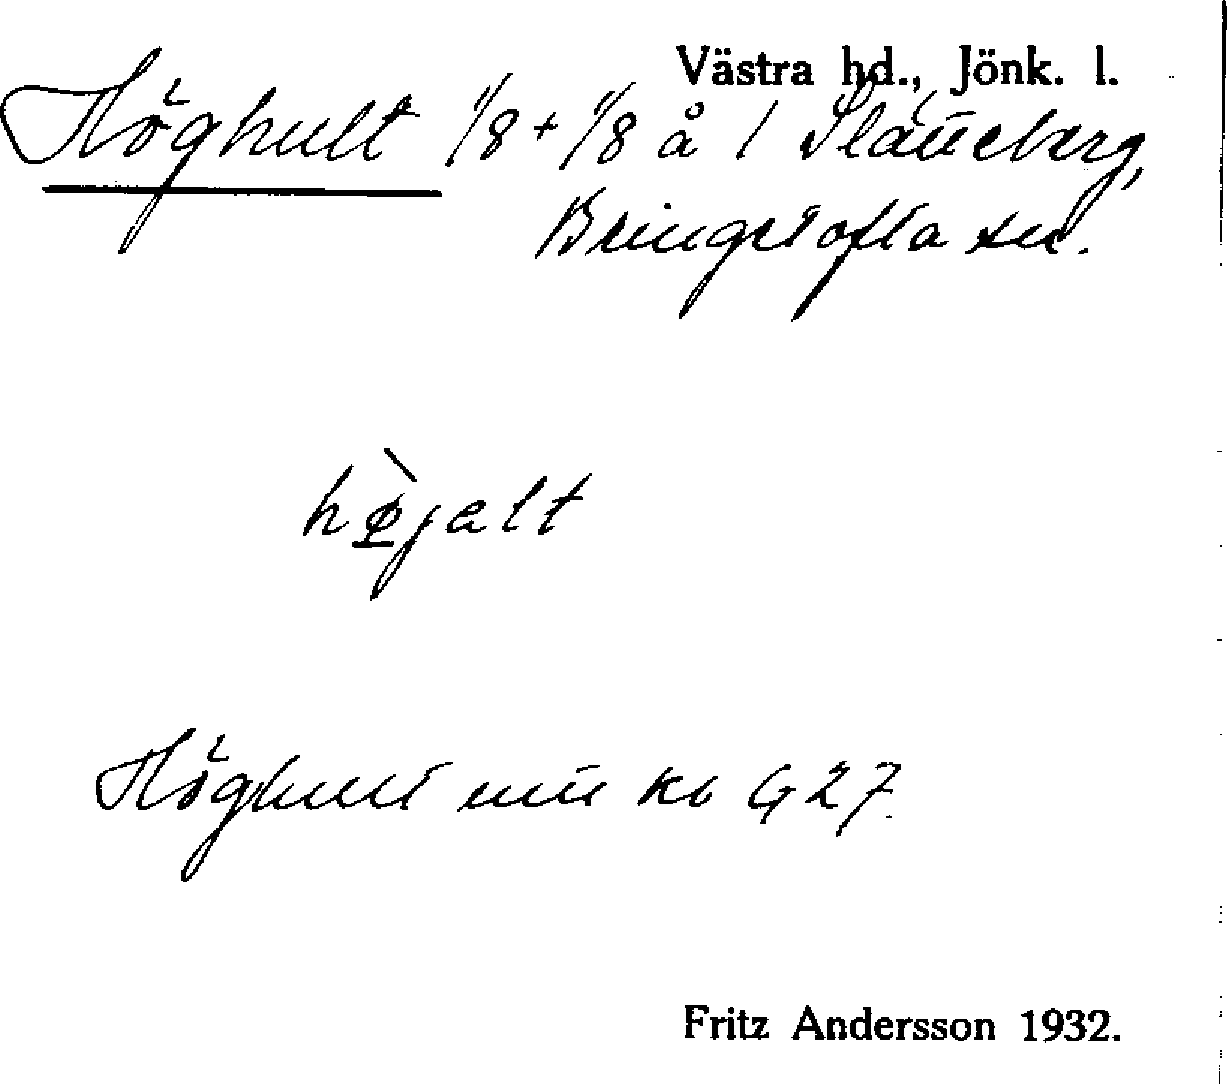 Västra hd., Jönk. l.
Höghult 1/8 + 1/8 å 1 Slätteberg,
Bringetofta sn.
hø̱̀jalt
Höghult kb G 27.
Fritz Andersson 1932.